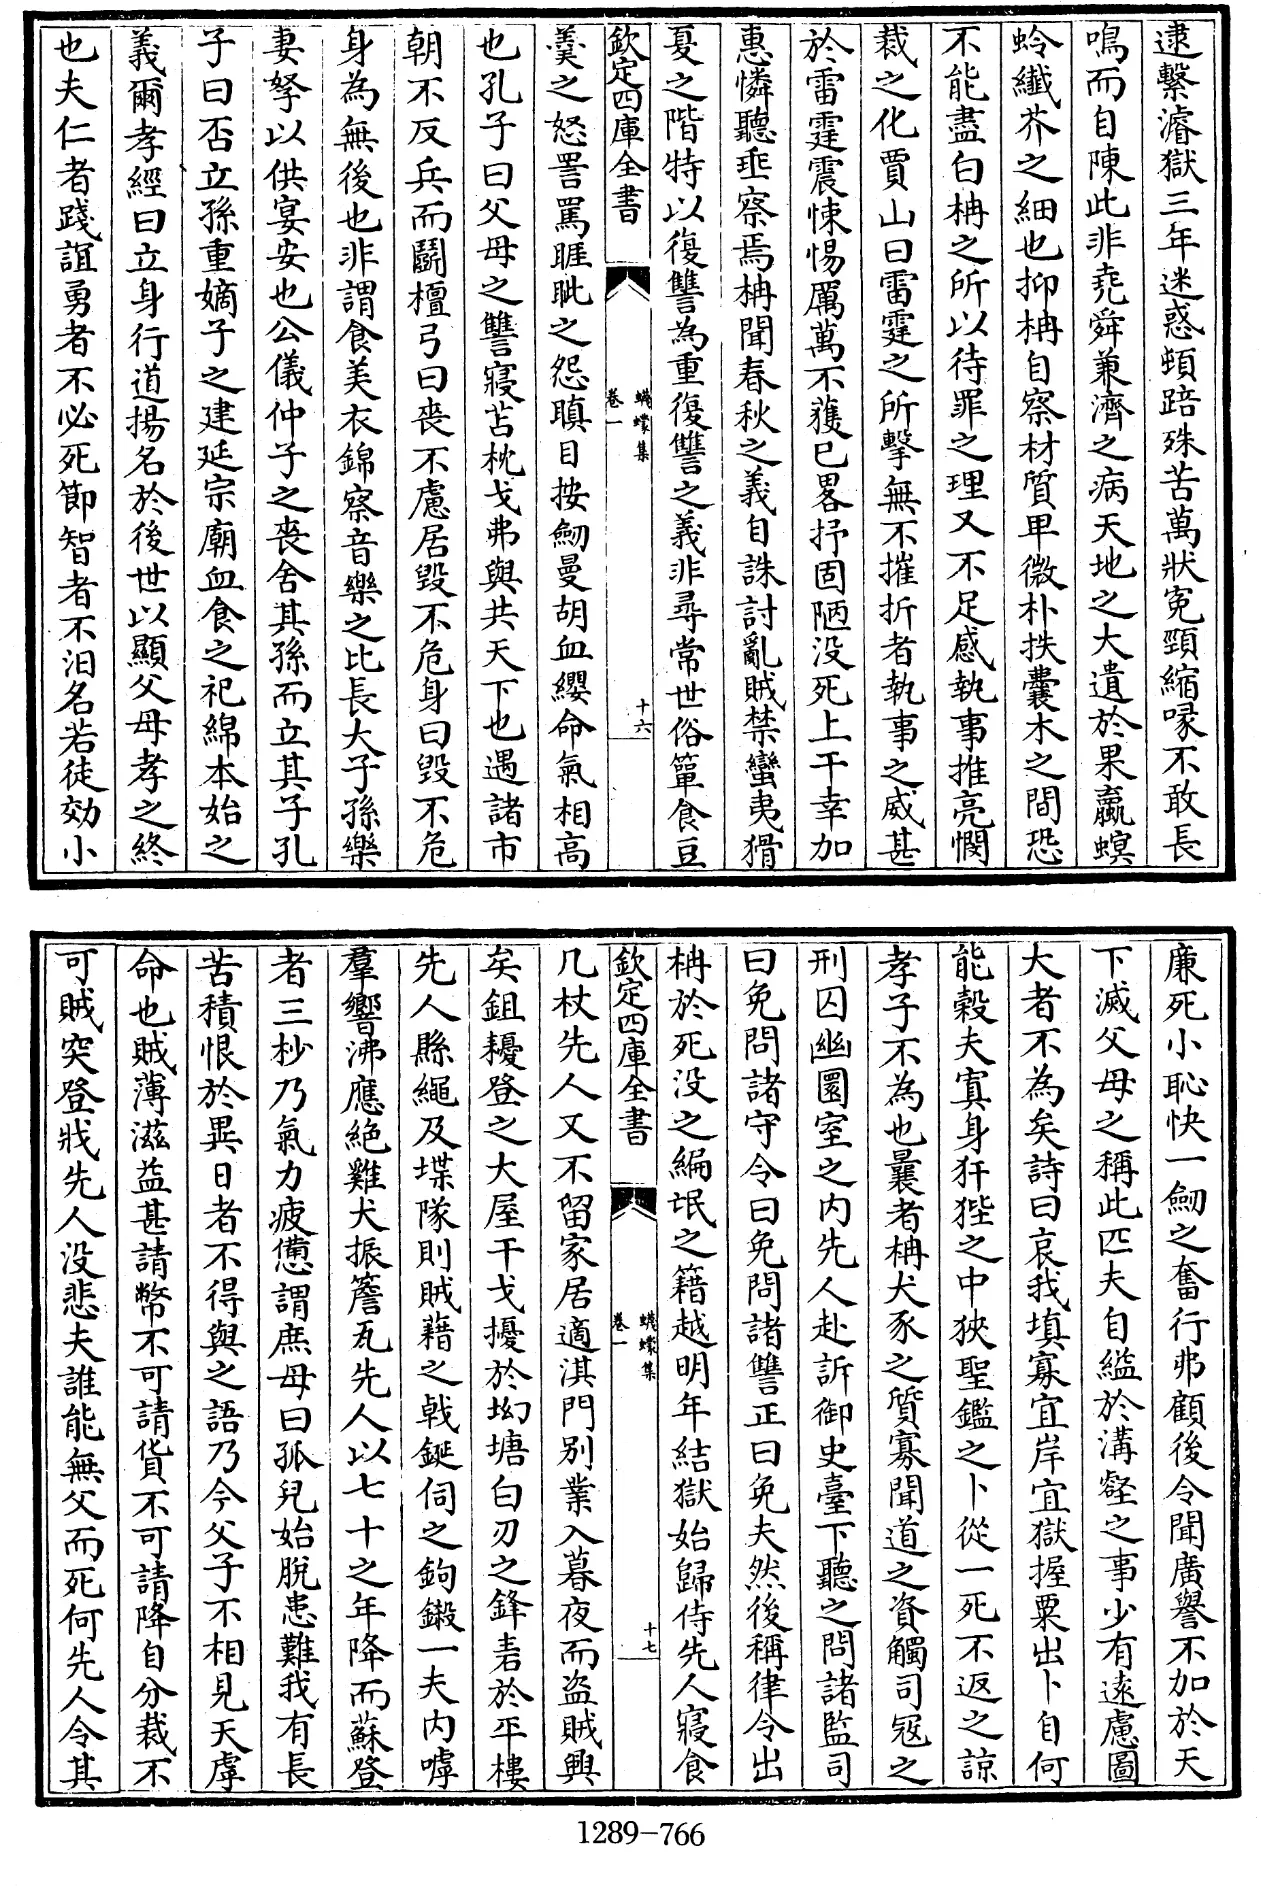 逮繫濬獄三年迷惑頓踣殊苦萬狀寃頸縮喙不敢長
鳴而自陳此非堯舜兼濟之病天地之大遺於果蠃螟
蛉纖芥之細也抑柟自察材質卑微朴抶囊木之間恐
不能盡白柟之所以待罪之理又不足感執事推亮憫
裁之化賈山曰雷霆之所擊無不摧折者執事之威甚
於雷霆震悚惕厲萬不獲已畧抒固陋没死上干幸加
惠憐聽垂察焉柟聞春秋之義自誅討亂賊禁蠻夷猾
夏之階特以復讐為重復讐之義非尋常世俗簞食豆
欽定四庫全書
蠛蠓集
卷一
十六
羮之怒詈罵睚眦之怨瞋目按劒曼胡血纓命氣相高
也孔子曰父母之讐寢苫枕戈弗與共天下也遇諸市
朝不反兵而鬭檀弓曰喪不慮居毀不危身曰毀不危
身為無後也非謂食美衣錦察音樂之比長大子孫樂
妻孥以供宴安也公儀仲子之喪舍其孫而立其子孔
子曰否立孫重嫡子之建延宗廟血食之祀綿本始之
義爾孝經曰立身行道揚名於後世以顯父母孝之終
也夫仁者踐誼勇者不必死節智者不汨名若徒効小
廉死小恥快一劒之奮行弗顧後令聞廣譽不加於天
下滅父母之稱此匹夫自縊於溝壑之事少有遠慮圖
大者不為矣詩曰哀我填寡宜岸宜獄握粟出卜自何
能穀夫寘身犴狴之中狹聖鑑之卜從一死不返之諒
孝子不為也曩者柟犬豕之質寡聞道之資觸司冦之
刑囚幽圜室之内先人赴訴御史臺下聽之問諸監司
曰免問諸守令曰免問諸讐正曰免夫然後稱律令出
柟於死没之編氓之籍越明年結獄始歸侍先人寢食
欽定四庫全書
蠛蠓集
卷一
十七
几杖先人又不留家居適淇門别業入暮夜而盗賊興
矣鉏耰登之大屋干戈擾於坳塘白刃之鋒砉於平樓
先人縣繩及堞隊則賊藉之戟鋋伺之鉤鎩一夫内嘑
羣響沸應絶雞犬振簷瓦先人以七十之年降而蘇登
者三杪乃氣力疲憊謂庶母曰孤兒始脫患難我有長
苦積恨於異日者不得與之語乃今父子不相見天虖
命也賊薄滋益甚請幣不可請貨不可請降自分裁不
可賊突登戕先人没悲夫誰能無父而死何先人令其
1289-766